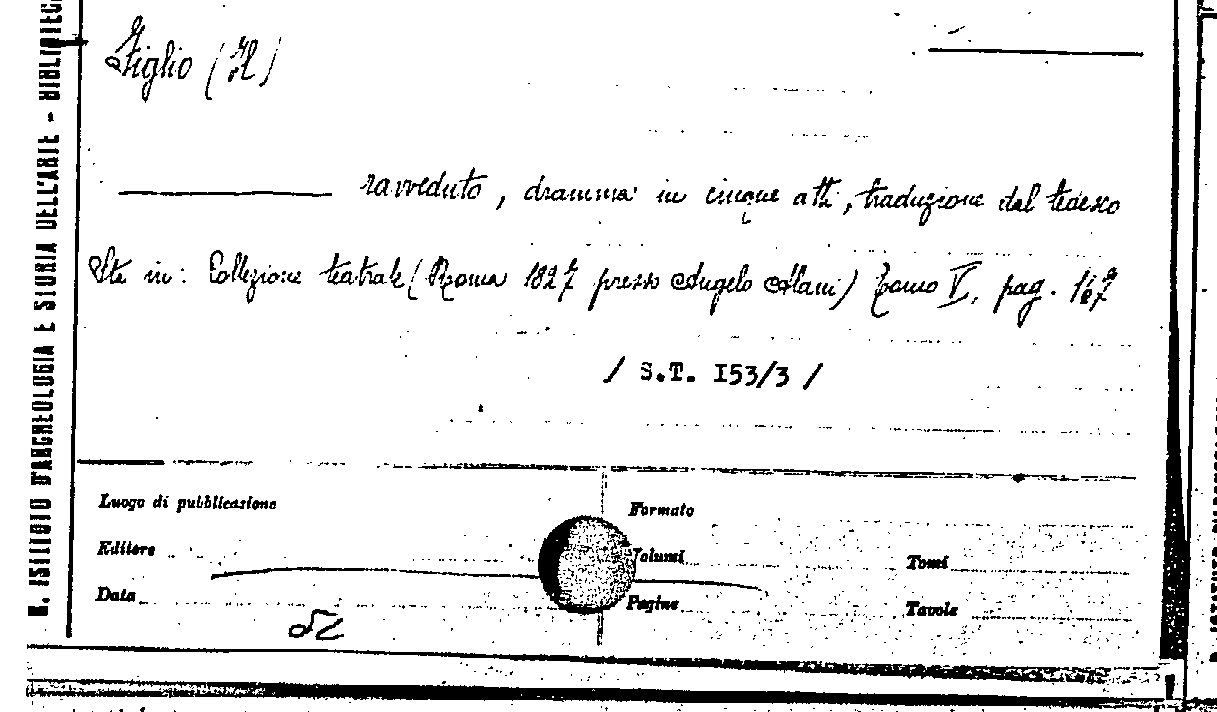 R. ISTITUTO D'ARCHEOLOGIA E STORIA DELL'ARTE - BIBLIOTECA
Figlio (Il)
ravveduto, dramma in cinque atti, traduzione dal tedesco
Sta in: Collezione teatrale (Roma 1827 presso Angelo Ajani) Tomo V, pag. 167
/ S.T. I53/3 /
Luogo di pubblicazione
Formato
Editore
Volumi
Tomi
Data
Pagine
Tavole